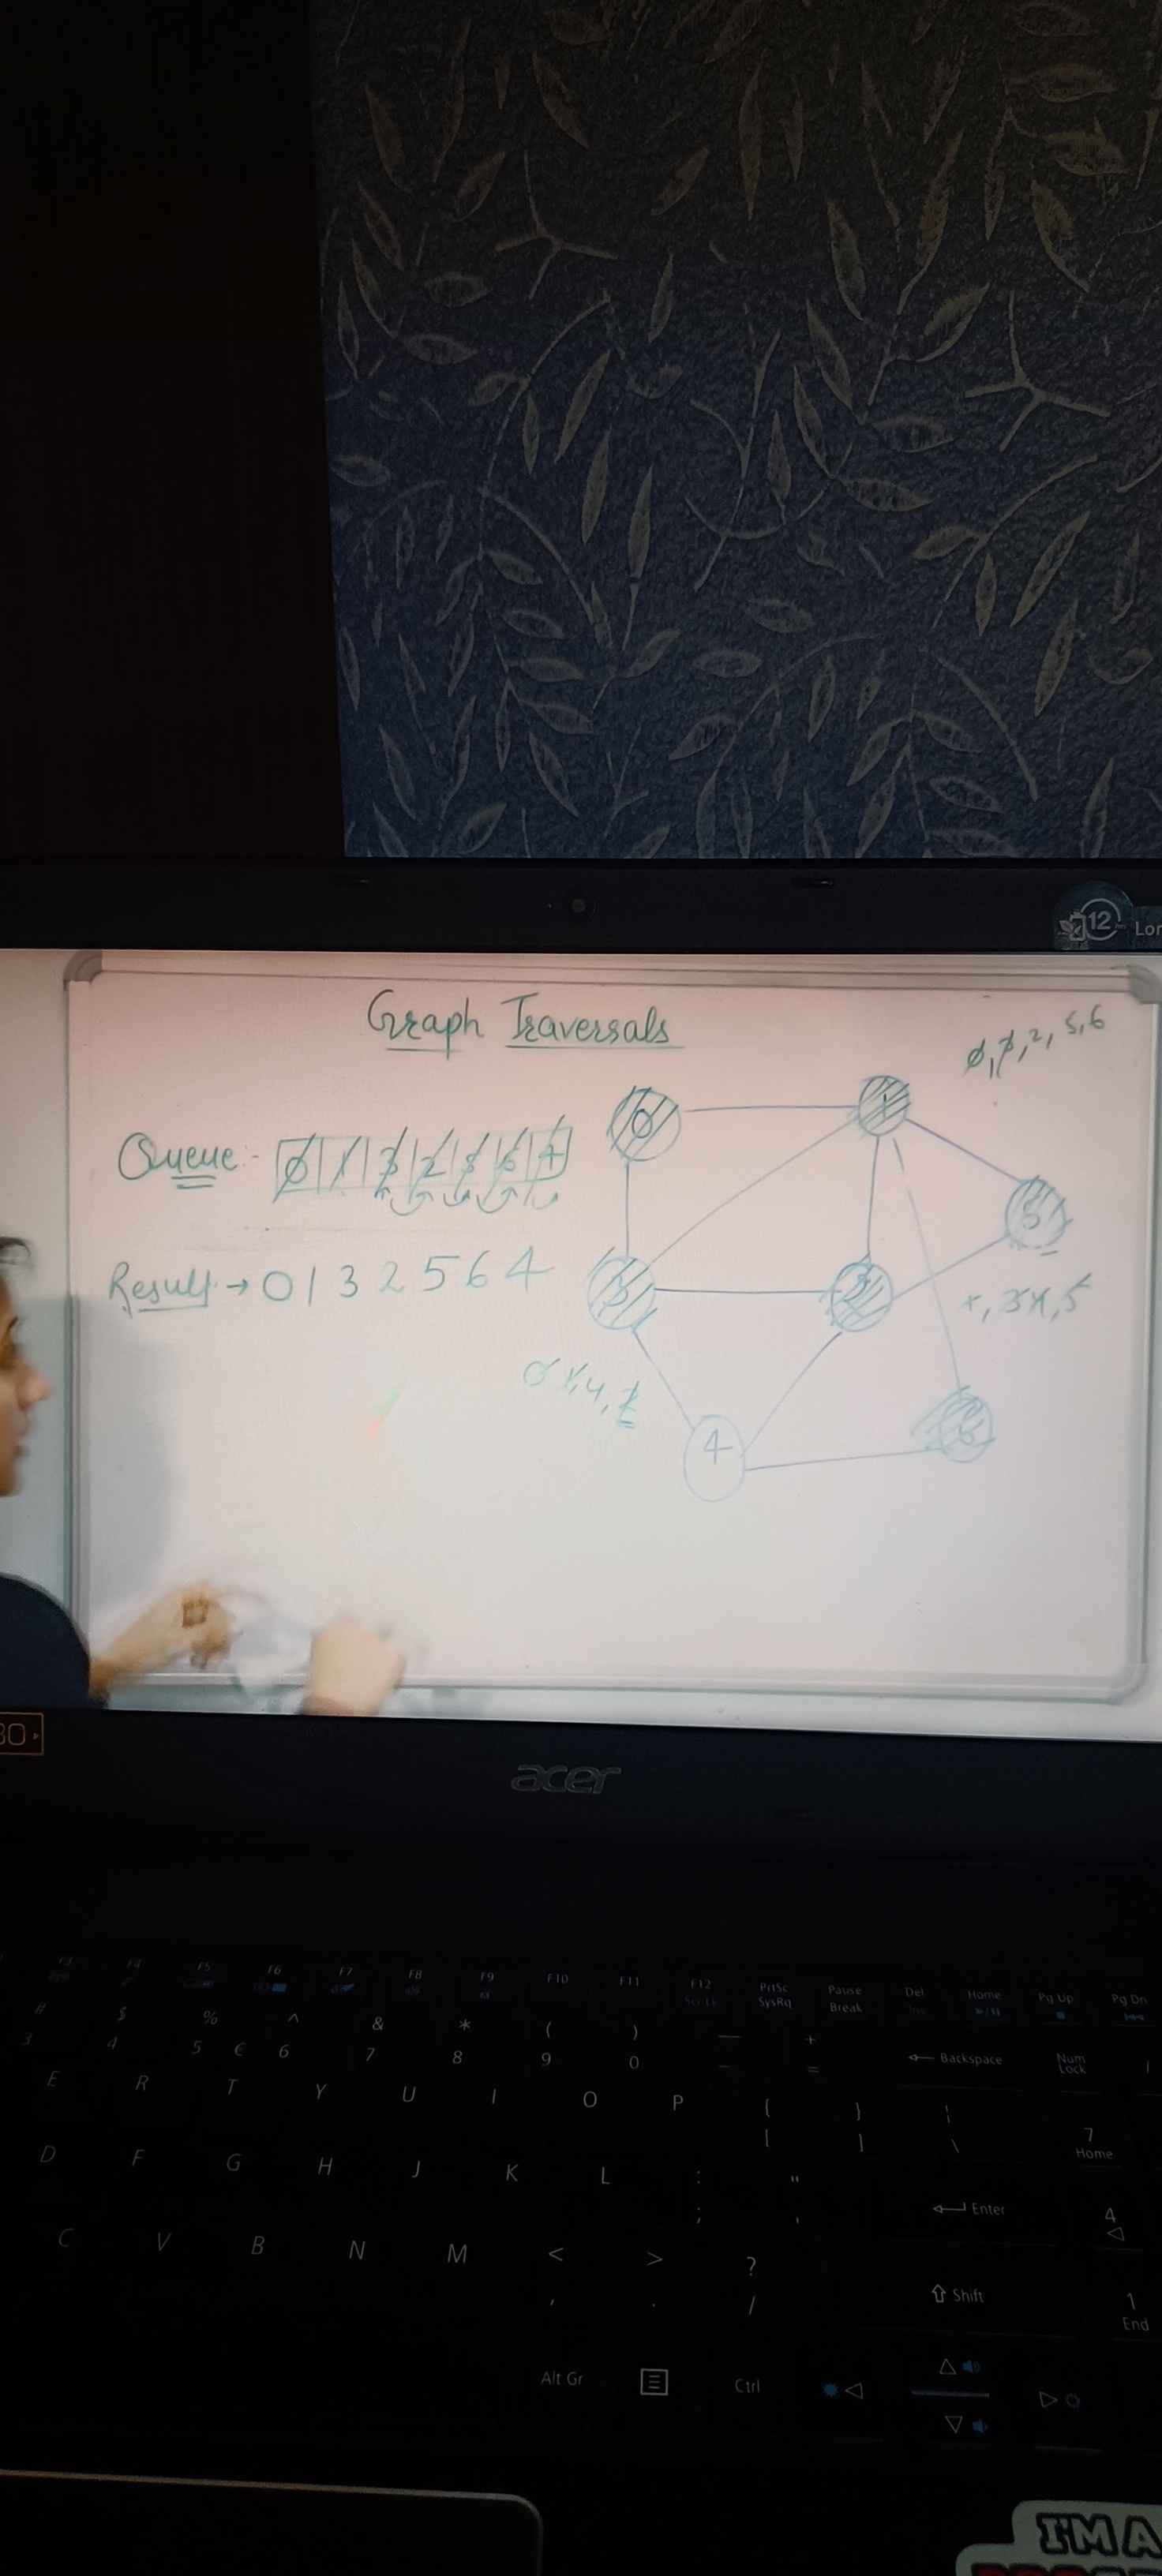 12
Lor
Graph Traversals
0, 3, 2, 5, 6
Queue:- 0 1 3 2 5 6 4
0
1
5
Result → 0 1 3 2 5 6 4
3
2
0 1, 4, 2
4
6
30
acer
F3 F4 F5 F6 F7 F8 F9 F10 F11 F12 PrtSc SysRq Pause Break Del Ins Home Pg Up Pg Dn
Scr Lk
# $ % ^ & * ( ) — +
3 4 5 € 6 7 8 9 0 - = Backspace Num Lock /
E R T Y U I O P { [ } ] | \ 7 Home
D F G H J K L : ; " ' Enter 4
C V B N M < , > . ? / Shift 1 End
Alt Gr Ctrl
I'M A